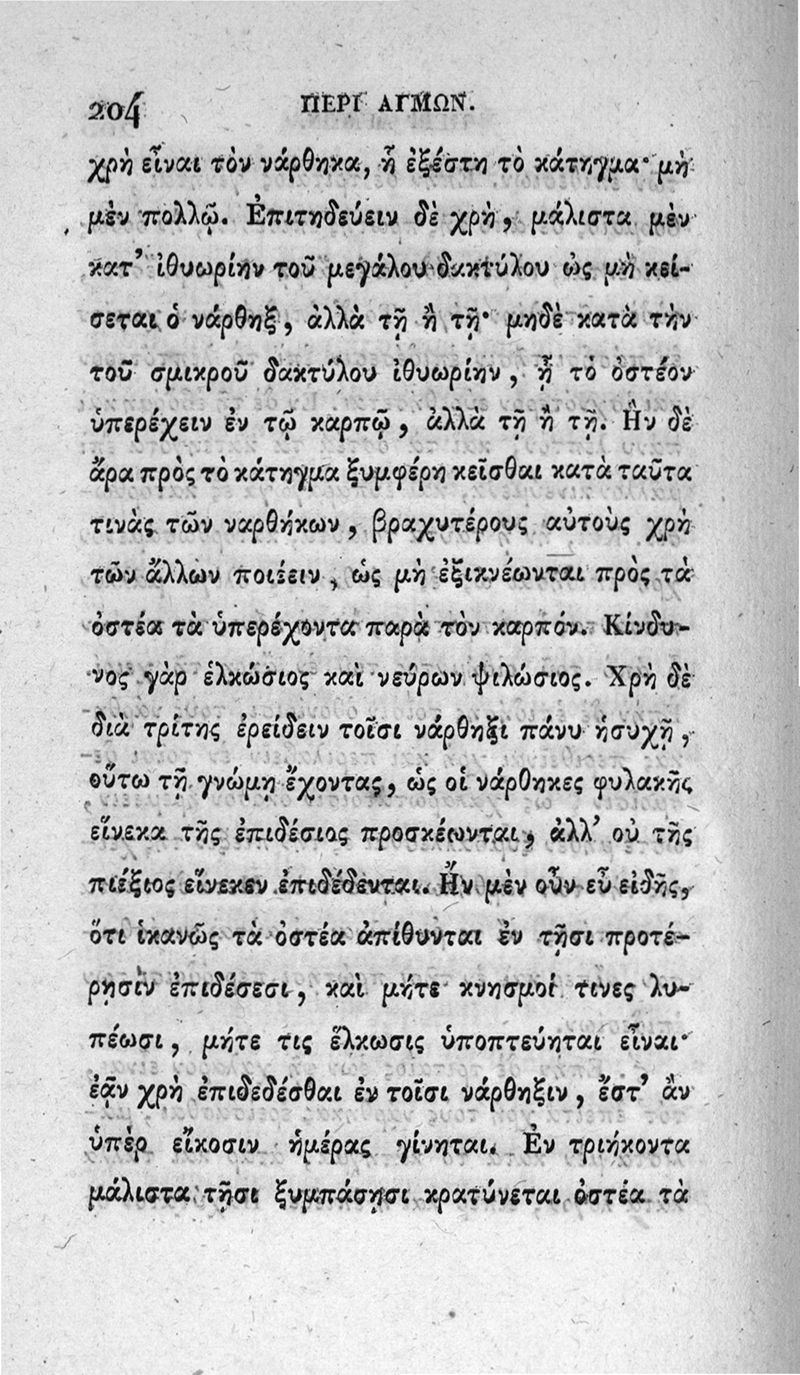 204 ΠΕΡΙ ΑΓΜΩΝ.
χρὴ εἶναι τὸν νάρθηκα, ᾗ ἐξέστη τὸ κάτηγμα· μὴ
μὲν πολλῷ. Ἐπιτηδεύειν δὲ χρὴ, μάλιστα μὲν
κατ’ ἰθυωρίην τοῦ μεγάλου δακτύλου ὡς μὴ κεί-
σεται ὁ νάρθηξ, ἀλλὰ τῇ ἢ τῇ· μηδὲ κατὰ τὴν
τοῦ σμικροῦ δακτύλου ἰθυωρίην, ᾗ τὸ ὀστέον
ὑπερέχειν ἐν τῷ καρπῷ, ἀλλὰ τῇ ἢ τῇ. Ἢν δὲ
ἄρα πρὸς τὸ κάτηγμα ξυμφέρῃ κεῖσθαι κατὰ ταῦτα
τινὰς τῶν ναρθήκων, βραχυτέρους αὐτοὺς χρὴ
τῶν ἄλλων ποιέειν, ὡς μὴ ἐξικνέωνται πρὸς τὰ
ὀστέα τὰ ὑπερέχοντα παρὰ τὸν καρπόν. Κίνδυ-
νος γὰρ ἑλκώσιος καὶ νεύρων ψιλώσιος. Χρὴ δὲ
διὰ τρίτης ἐρείδειν τοῖσι νάρθηξι πάνυ ἡσυχῇ,
οὕτω τῇ γνώμῃ ἔχοντας, ὡς οἱ νάρθηκες φυλακῆς
εἵνεκα τῆς ἐπιδέσιος προσκέωνται, ἀλλ’ οὐ τῆς
πιέξιος εἵνεκεν ἐπιδέδενται. Ἢν μὲν οὖν εὖ εἰδῇς,
ὅτι ἱκανῶς τὰ ὀστέα ἀπίθυνται ἐν τῇσι προτέ-
ρῃσιν ἐπιδέσεσι, καὶ μήτε κνησμοί τινες λυ-
πέωσι, μήτε τις ἕλκωσις ὑποπτεύηται εἶναι·
ἐᾷν χρὴ ἐπιδεδέσθαι ἐν τοῖσι νάρθηξιν, ἔστ’ ἂν
ὑπὲρ εἴκοσιν ἡμέρας γίνηται. Ἐν τριήκοντα
μάλιστα τῇσι ξυμπάσῃσι κρατύνεται ὀστέα τὰ